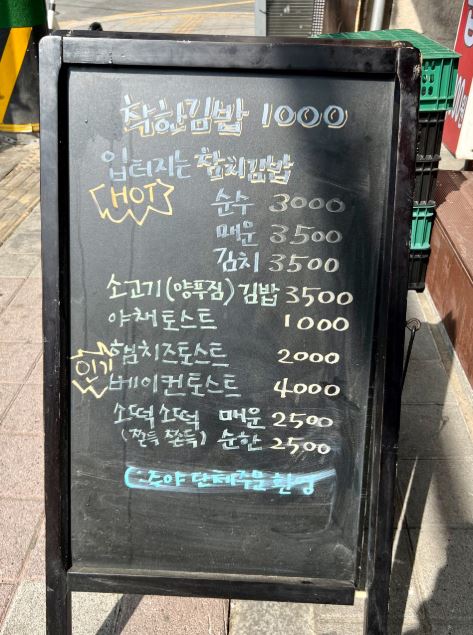 착한김밥 1000
입터지는 참치김밥
HOT
순수 3000
매운 3500
김치 3500
소고기(양푸짐) 김밥 3500
야채토스트 1000
인기
햄치즈토스트 2000
베이컨토스트 4000
소떡소떡 매운 2500
(쫄득 쫀득) 순한 2500
단체주문 환영